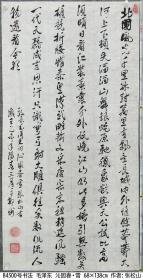 北国风光千里冰封万里雪飘望长城内外惟余莽莽大
河上下顿失滔滔山舞银蛇原驰蜡象欲与天公试比高
须晴日看红装素裹分外妖娆江山如此多娇引无数英
雄竞折腰惜秦皇汉武略输文采唐宗宋祖稍逊风骚
一代天骄成吉思汗只识弯弓射大雕俱往矣数风流人
物还看今朝
84500号书法 毛泽东 沁园春・雪 68×138cm 作者: 张松山